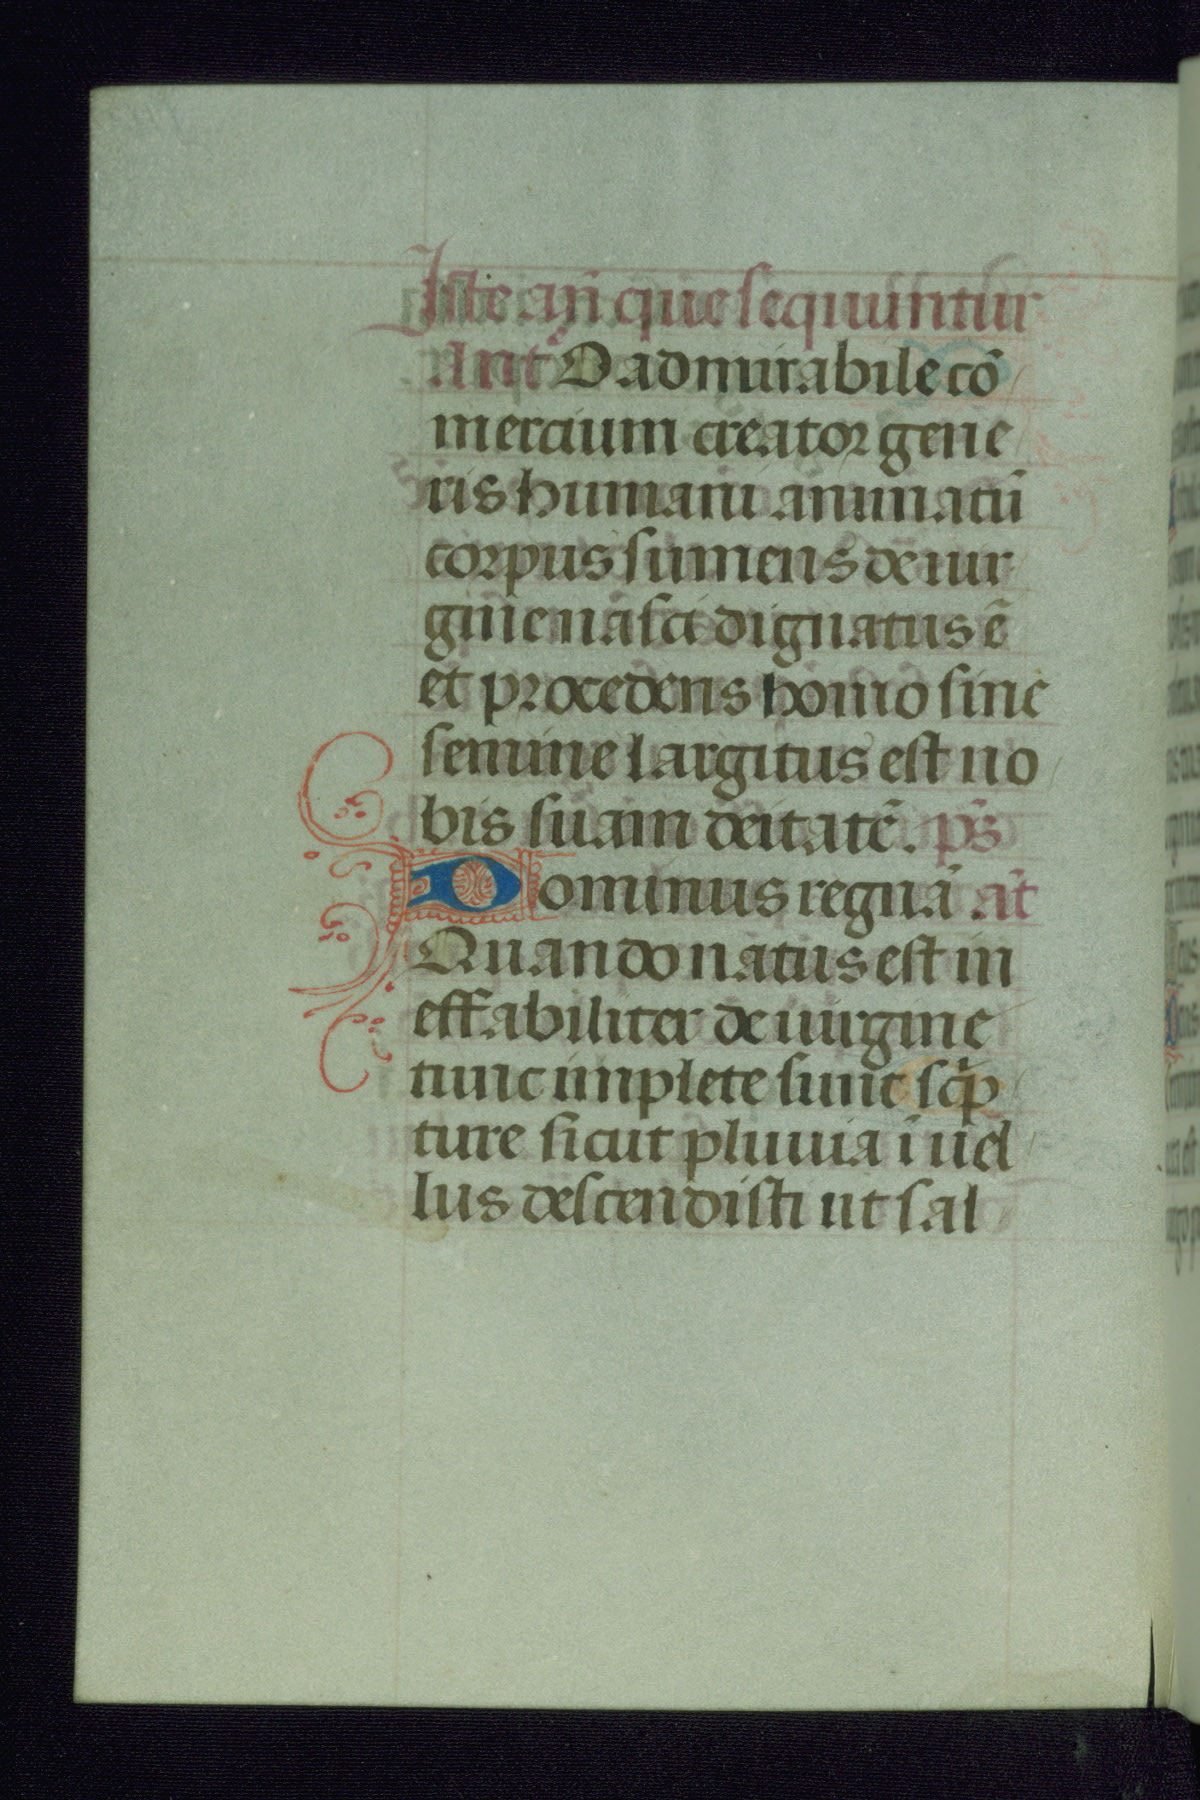 Iste an̄ que sequuntur
Ant̾ O admirabile cō
mercium creator gene
ris humani animatū
corpus sumens de uir
gine nasci dignatus ē
et procedens homo sine
semine largitus est no
bis suam deitatē. ps̄
Dominus regnā. at̄
Quando natus est in
effabiliter de uirgine
tunc implete sunt sc̾p
ture sicut pluuia ī uel
lus descendisti ut sal